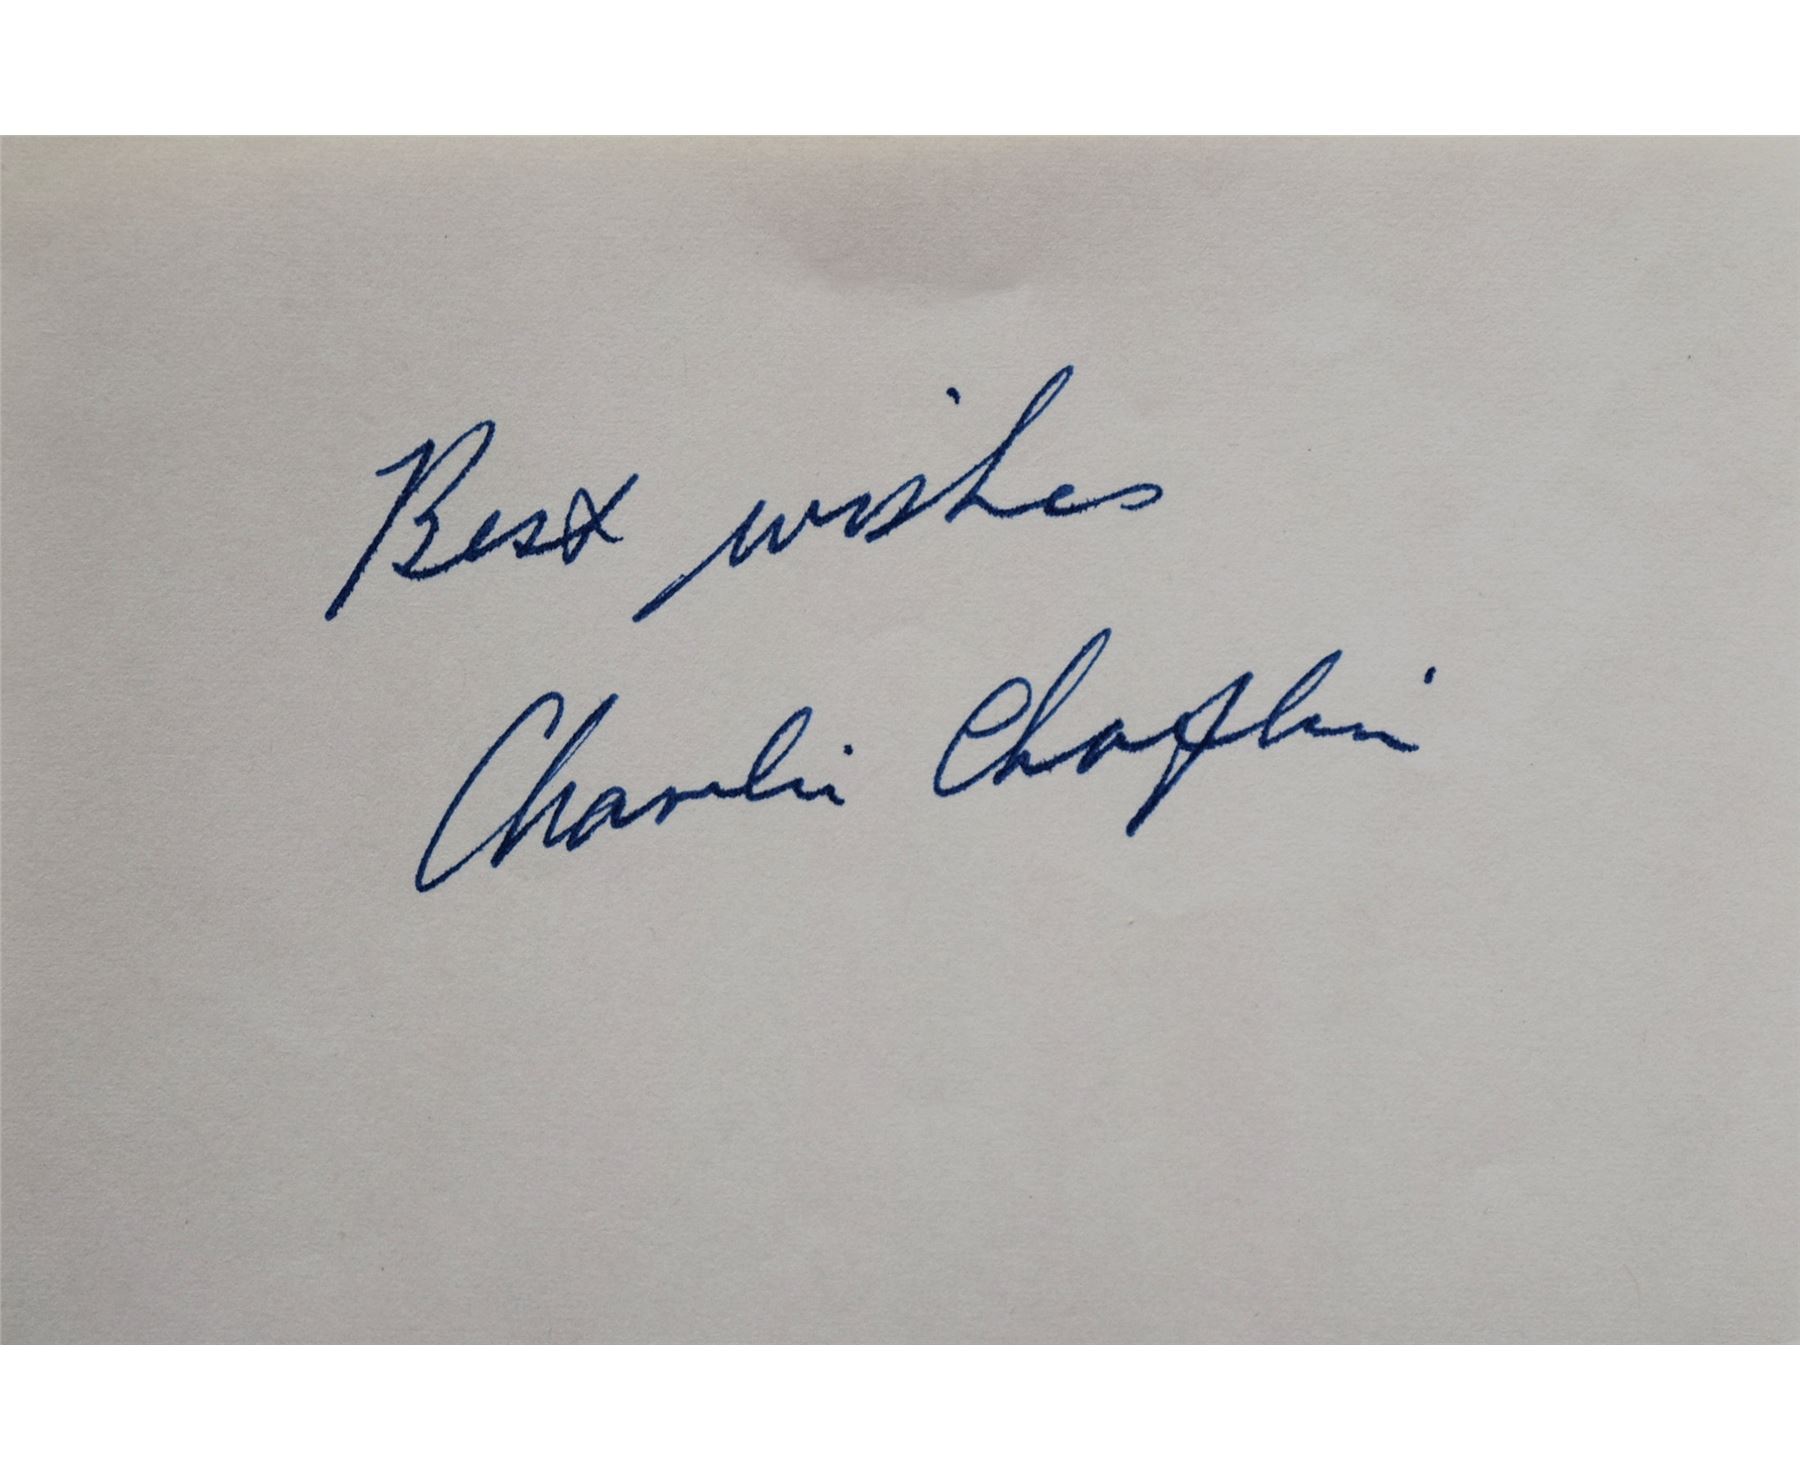 Best wishes
Charlie Chaplin